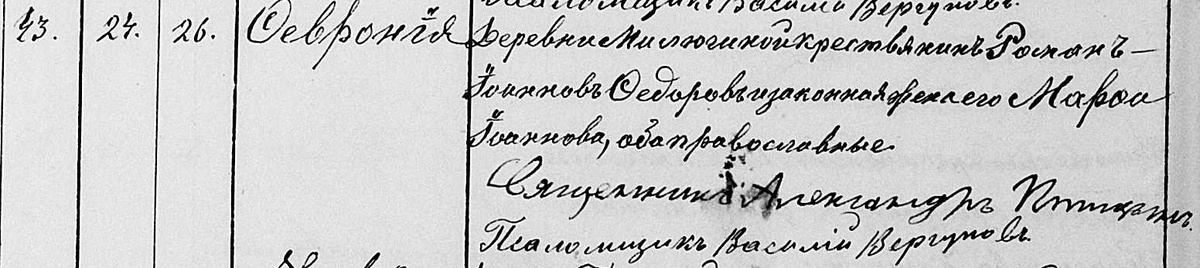 Псаломщикъ Василій Вергуновъ.
43. 24. 26. Ѳевронія Деревни Милюгиной крестьянинъ Романъ
Іоанновъ Ѳедоровъ и законная жена его Марѳа
Іоаннова, оба православные.
Священникъ Александръ
Псаломщикъ Василій Вергуновъ